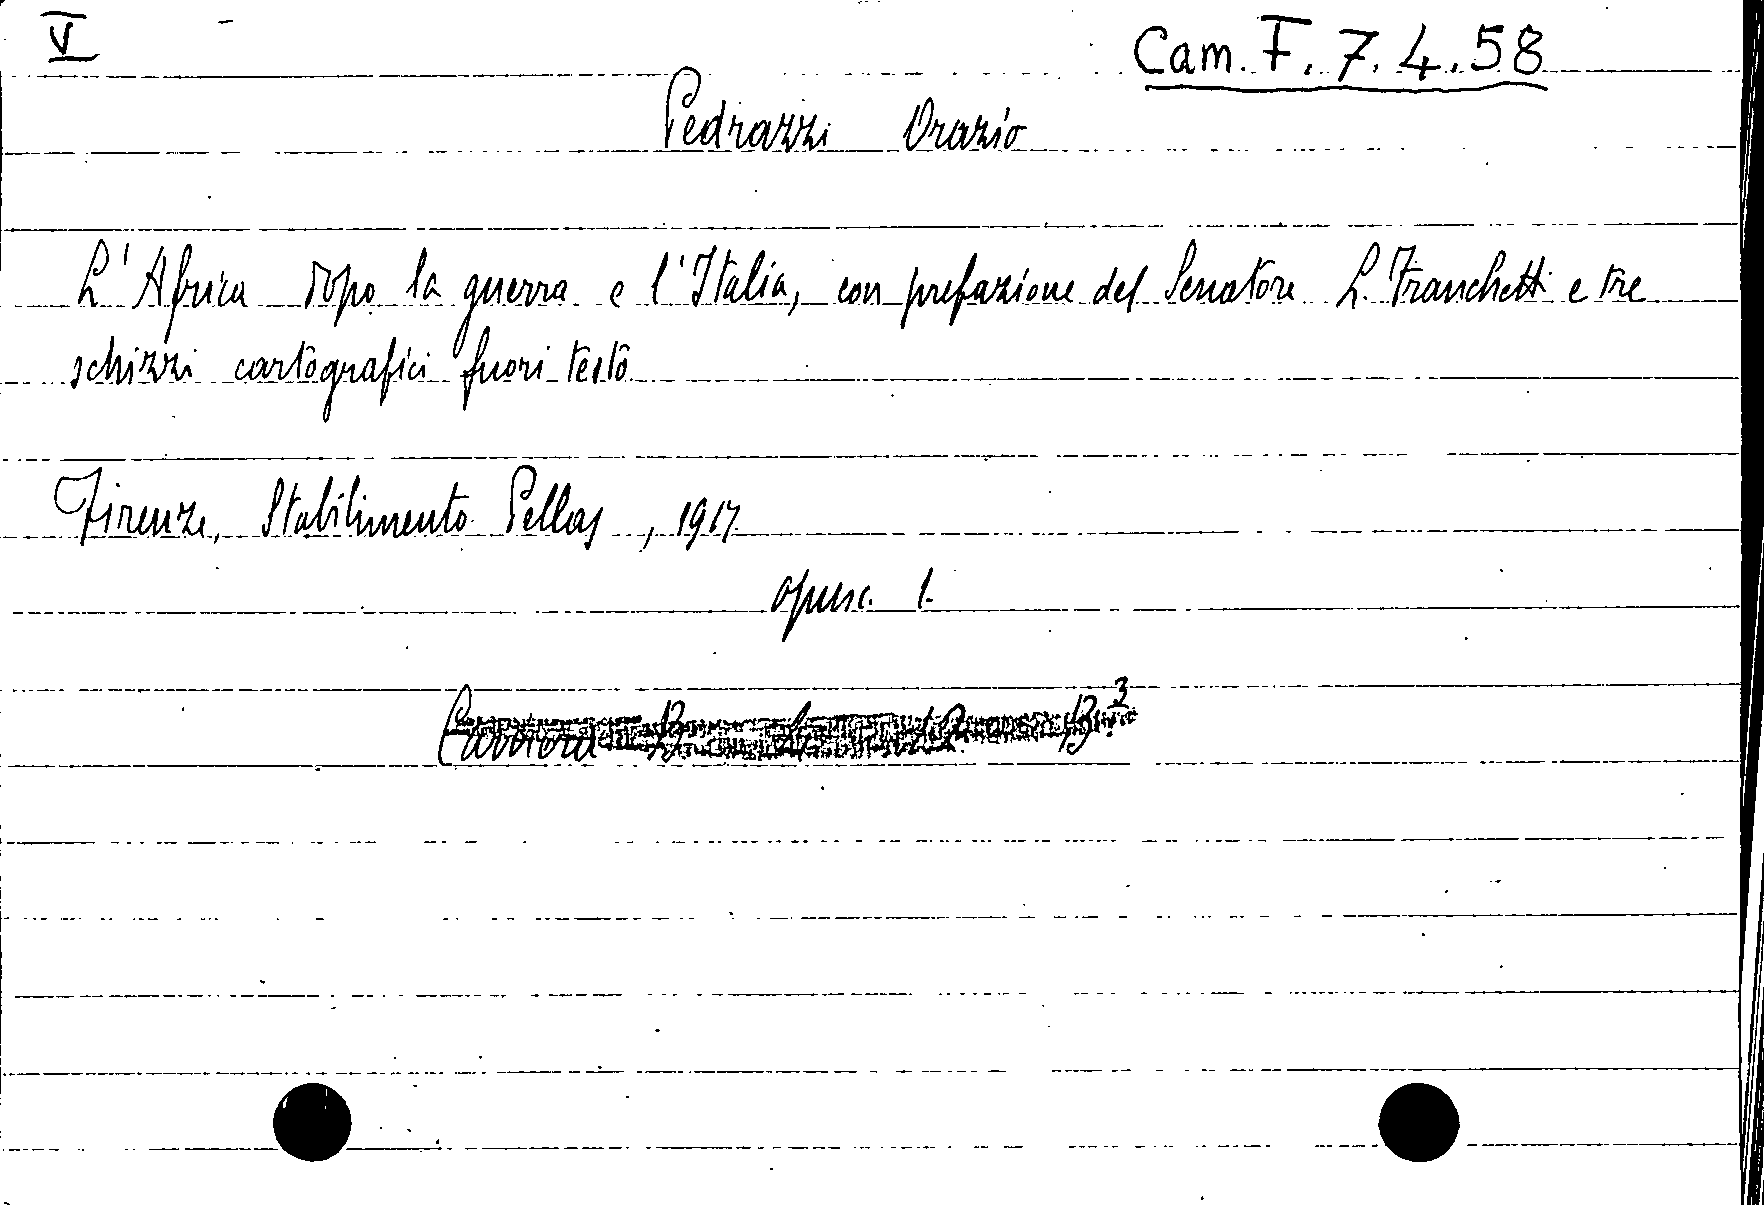 V
Cam. F. 7. 4. 58
Pedrazzi Orazio
L'Africa dopo la guerra e l'Italia, con prefazione del Senatore L. Franchetti e tre
schizzi cartografici fuori testo
Firenze, Stabilimento Pellas, 1917
opusc. 1.